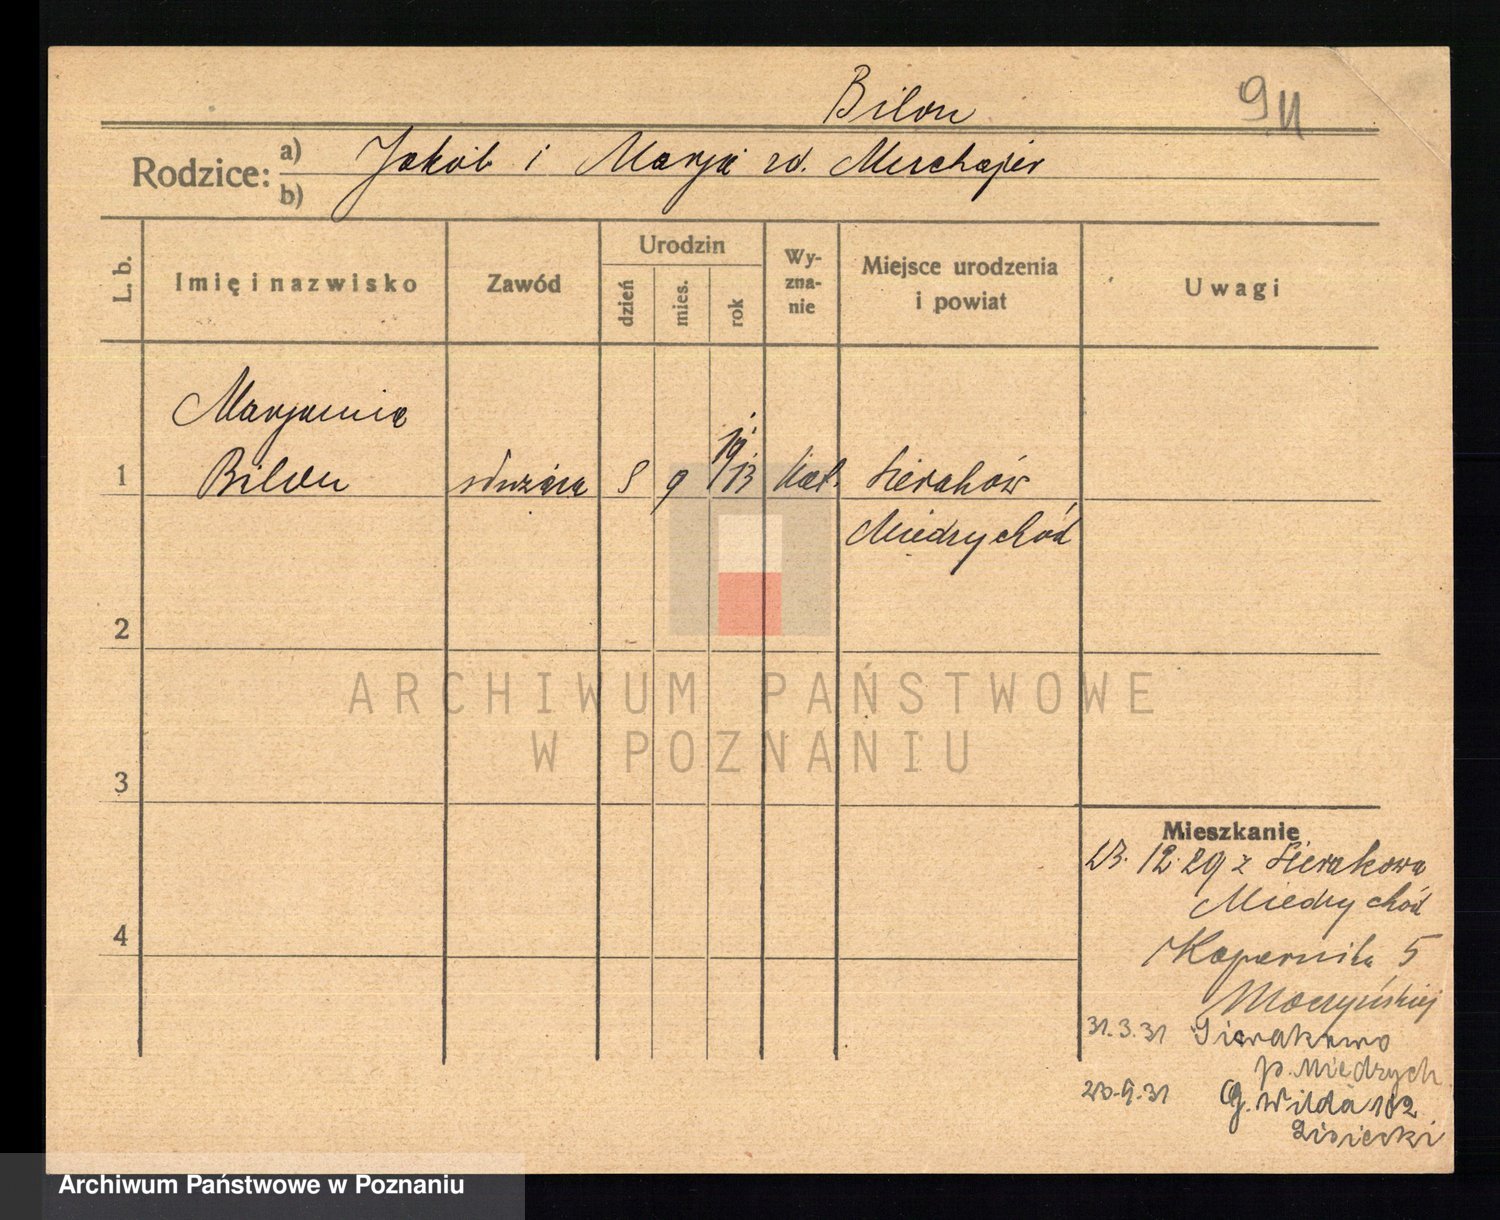 Bilon
Rodzice: a) b)
Jakób i Marja zd. Merchajer
L. b.
Imię i nazwisko
Zawód
Urodzin
dzień
mies.
rok
Wy-
zna-
nie
Miejsce urodzenia
i powiat
Uwagi
Marjanna
1 Bilon służąca 8 9 19/13 kat. Sieraków
Międzychód
2
3
4
Mieszkanie
23. 12. 29 z Sierakowa
Międzychód
Kopernika 5
31. 3. 31 Sierakowo
p. Międzych
23. 9. 31 G. Wilda 102
ARCHIWUM PAŃSTWOWE
W POZNANIU
Archiwum Państwowe w Poznaniu